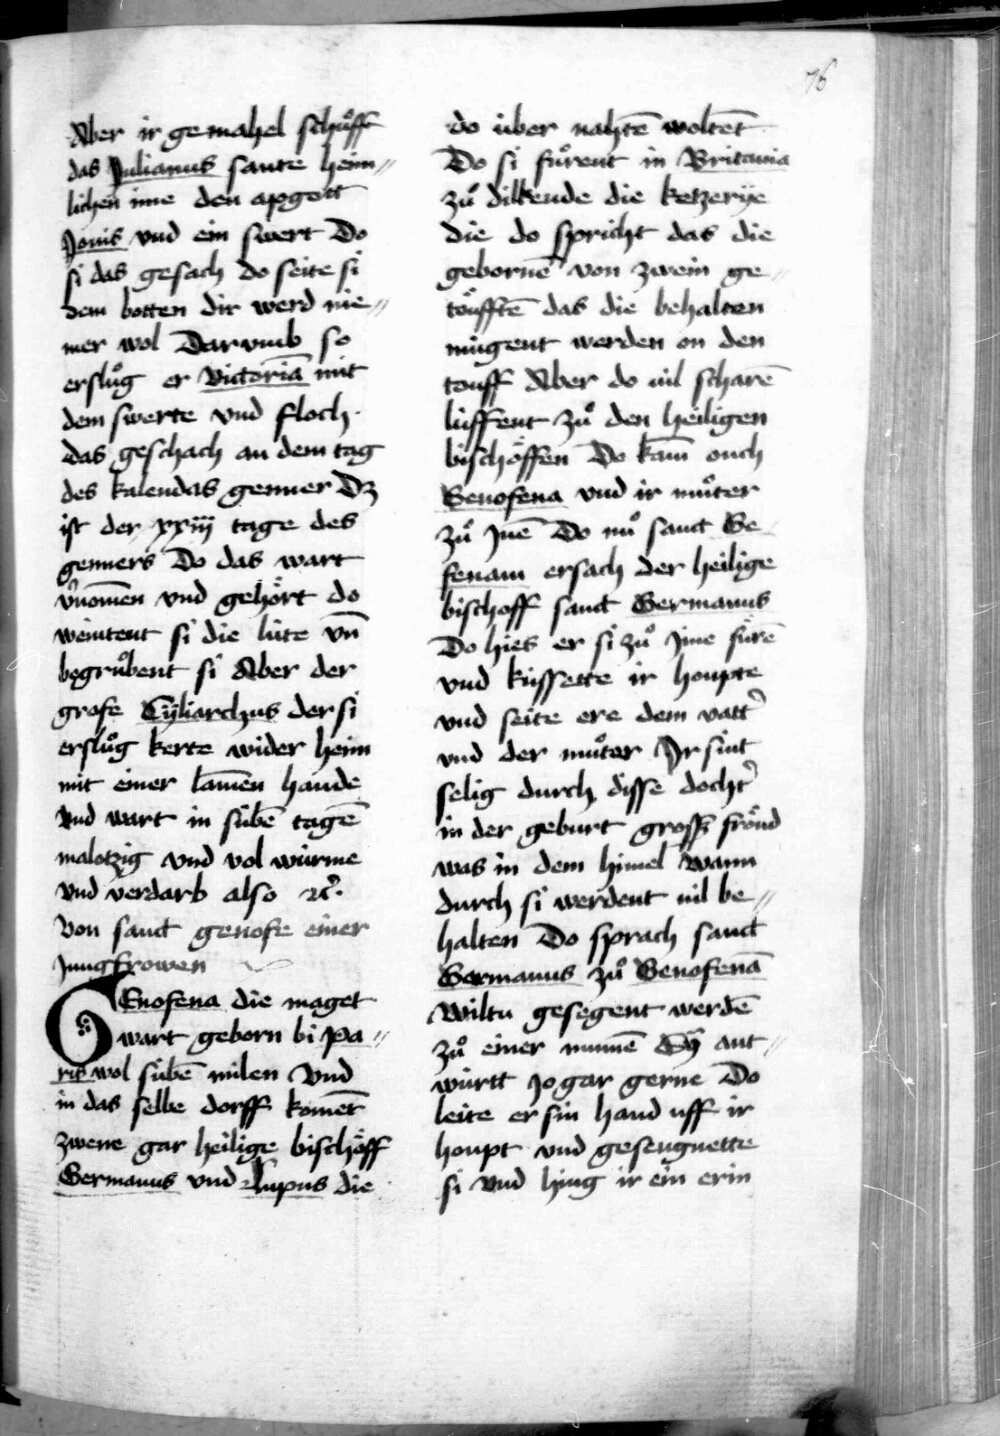 76
Aber ir gemahel schuͦff
das Julianus sante heim〃
lichen ime den apgott
Jouis vnd ein swert Do
si das gesach do seite si
dem botten dir werd nie〃
mer wol Darvmb so
ersluͦg er Victoriā mit
dem swerte vnd floch·
das geschach an dem tag
des kalendas genner Dz
ist der xxiij tage des
genners Do das wart
v̓nomen vnd gehoͤrt do
weintent si die lüte vn̄
begruͦbent si Aber der
grofe Cyliarchus der si
ersluͦg kerte wider heim
mit einer lamen hande
vnd wart in sübē tagē
malotzig vnd vol würme
vnd verdarb also ⁊c̓·
Von sanct genofe einer
Jungfrowen
GEnofena die maget
wart geborn bi Pa〃
ris wol sübē milen Vnd
in das selbe dorff komēt
zwene gar heilige bischoͤff
Germanus vnd Lupus die
do über nahtē woltēt
Do si fuͦrent in Britania
zuͦ dilkende die ketzerye
die do spricht das die
gebornē von zwein ge〃
toͤufftē das die behalten
mügent werden on den
touff Aber do vil scharē
lüffent zuͦ den heiligen
bischoͤffen Do kam ouch
Genofena vnd ir muͦter
zuͦ Jnē Do nuͦ sanct Ge
fenam ersach der heilige
bischoff sanct Germanus
Do hies er si zuͦ Jme fürē
vnd küssette ir houpte
vnd seite ere dem vatt̓
vnd der muͦter Jr sint
selig durch disse docht̓
in der geburt gross froͤud
was in dem himel Wann
durch si werdent vil be〃
halten Do sprach sanct
Germanus zuͦ Genofenā
Wiltu gesegent werdē
zuͦ einer nunnē Sy ant〃
württ Jo gar gerne Do
leite er sin hand uff ir
houpt vnd gesengnette
si vnd hing ir ein erin